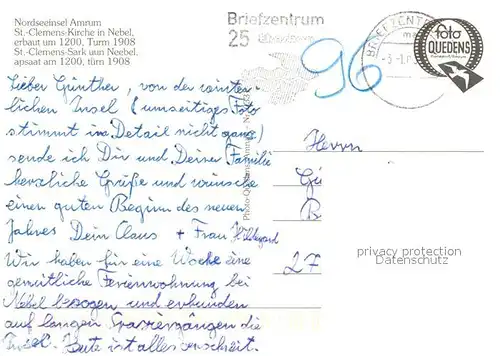 Nordseeinsel Amrum
St.-Clemens-Kirche in Nebel,
erbaut um 1200, Turm 1908
St.-Clemens-Sark uun Neebel,
apsaat am 1200, türn 1908
Briefzentrum
25
96
BRIEFZENT
foto
QUEDENS
Lieber Günther, von der winter-
lichen Insel (umseitiges Foto
stimmt im Detail nicht ganz)
sende ich Dir und Deiner Familie
herzliche Grüße und wünsche
einen guten Beginn des neuen
Jahres Dein Claus + Frau Hildegard
Wir haben für eine Woche eine
gemütliche Ferienwohnung bei
Nebel bezogen und erkunden
auf langen Spaziergängen die
Insel. Heute ist alles verschneit.
Herrn
Gü
B
27
privacy protection
Datenschutz